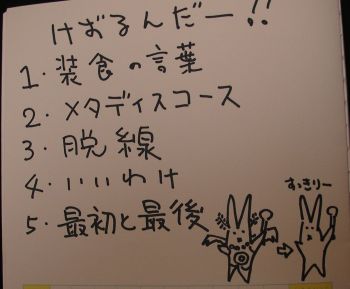 けずるんだー!!
1. 装食の言葉
2. メタディスコース
3. 脱線
4. いいわけ
5. 最初と最後
すっきりー